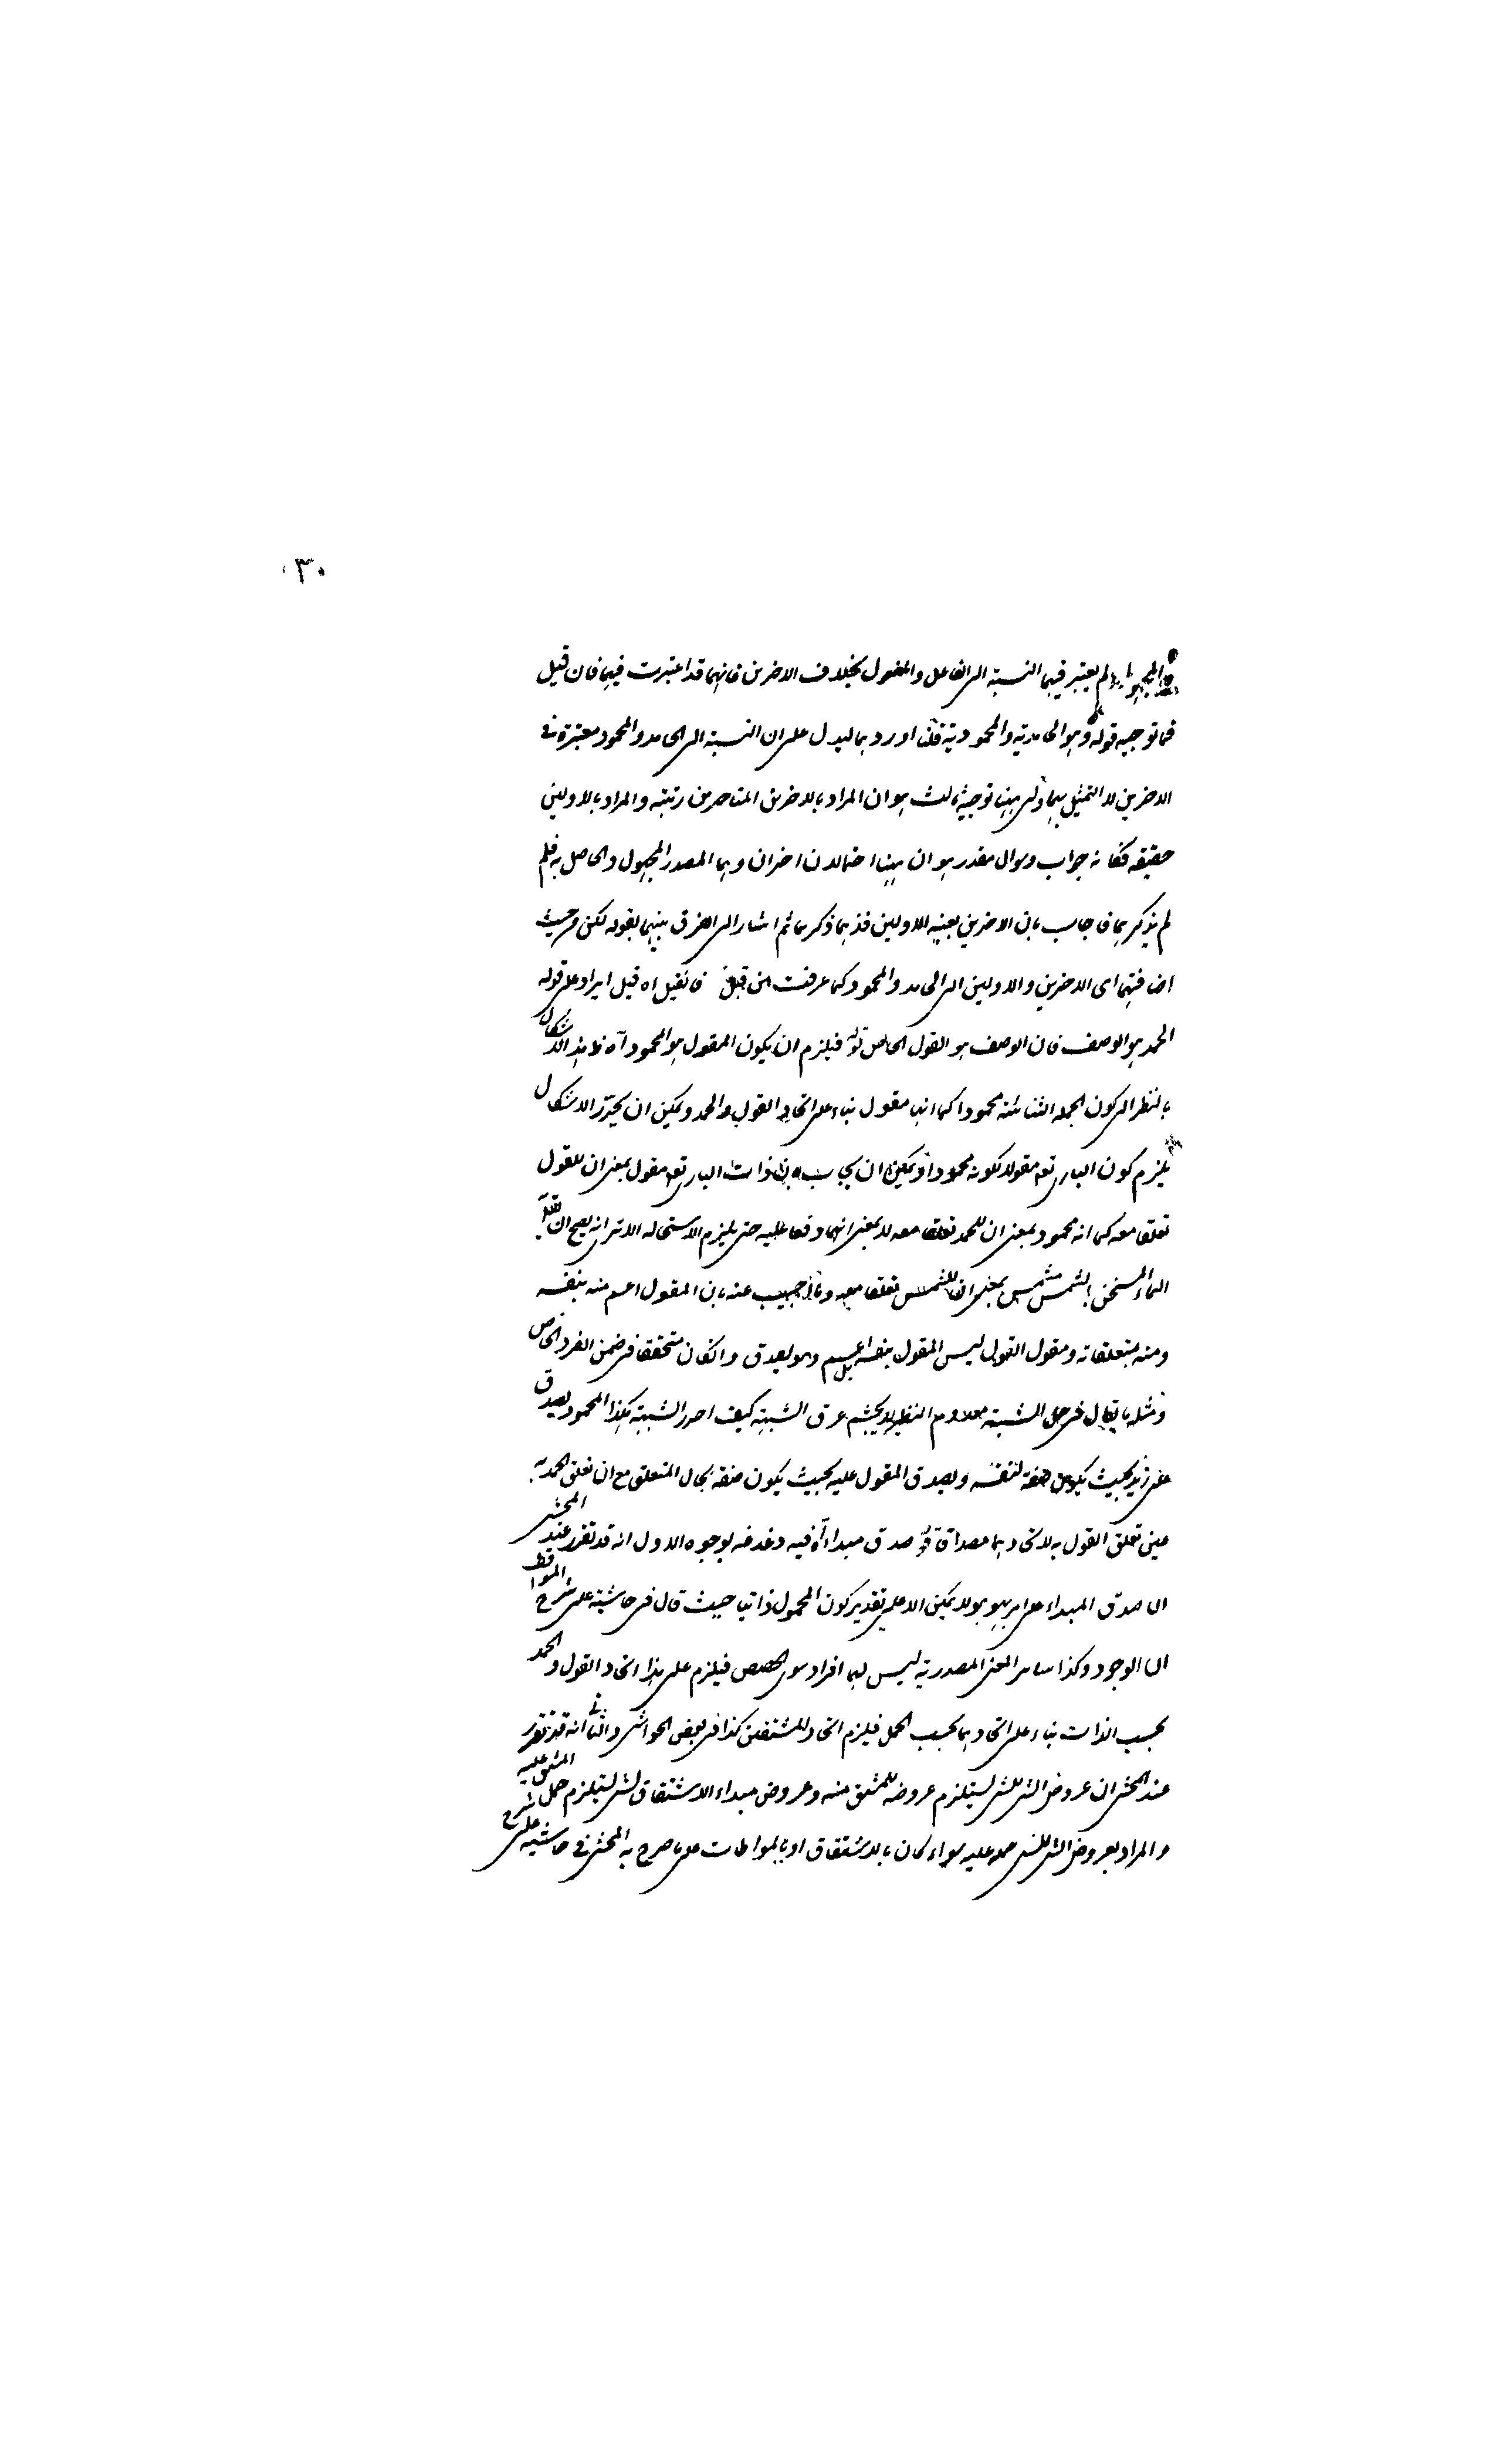 ٣٠
لم يعتبر فيهما النسبة الى الفاعل والمفعول بخلاف الاخرين فانهما قد اعتبرت فيهما فان قيل
فما توجيه قوله وهو الحامدية والمحمودية قلنا اوردهما ليدل على ان النسبة الى الحامد والمحمود معتبرة في
الاخرين لا التمثيل بهما ولى ههنا توجيه ثالث هو ان المراد بالاخرين المتاخرين رتبته والمراد بالاولين
حقيقة فكانه جواب سوال مقدر هو ان ههنا احتمالان اخران وهما المصدر المجهول والحاصل به فلم
لم يذكرهما فاجاب بان الاخرين بعينه الاولين فذهما ذكرهما ثم اشار الى الفرق بينهما بقوله لكن من حيث
اضافتهما اى الاخرين والاولين الى الحامد والمحمود كما عرفت من قبل فان قيل اه قيل ايراد على قوله
الحمد هو الوصف فان الوصف هو القول الخاص قوله فيلزم ان يكون المقول هو المحمود اه هذا الاشكال
بالنظر الى كون الجملة الثنائية محمودا كما انها مقول بناء على اتحاد القول والحمد ويمكن ان يحرر الاشكال
يلزم كون البارى تعه مقولا لكونه محمودا ويمكن ان يجاب بان ذات البارى تعه مقول بمعنى ان للقول
تعلقا معه كما انه محمود بمعنى ان للحمد تعلقا معه لا بمعنى انهما وقعا عليه حتى يلزم الاستحالة الا ترى انه يصح ان يقال
الماء المسخن بالشمس مشمس بمعنى ان للشمس تعلقا معه وما اجيب عنه بان المقول اعم منه بنفسه
ومنه بمتعلقاته ومقول القول ليس المقول بنفسه بل اعم وهو يصدق وانكان متحققا في ضمن الفرد الخاص
ومثله ما يقال في حل الشبهة
على زيد بحيث يكون صفة لنفسه ويصدق المقول عليه بحيث يكون صفة بحال المتعلق مع ان تعلق الحمد به
عين تعلق القول به لاتحادهما مصداقا قوله صدق مبداء اه فيه دغدغة بوجوه الاول انه قد تقرر عند المحشى
ان صدق المبداء على امر هو هو لا يمكن الا على تقدير كون المحمول ذاتيا حيث قال في حاشية على شرح المواقف
ان الوجود وكذا سائر المعنى المصدرية ليس لها افراد سوى الحصص فيلزم على هذا اتحاد القول والحمد
بحسب الذات بناء على اتحادهما بحسب الحمل فيلزم اتحاد المشتقين كذا في بعض الحواشى والثانى انه قد تقرر
عند المحشى ان عروض الشى للشى يستلزم عروضه للمشتق منه وعروض مبداء الاشتقاق لشى يستلزم حمل المشتق عليه
والمراد بعروض الشى للشى حمله عليه سواء كان بالاشتقاق او بالمواطات على ما صرح به المحشى في حاشية على شرح